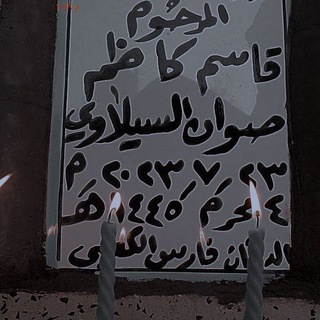 المرحوم
قاسم كاظم
صوان السيلاوي
٢٣ ٧ ٢٠٢٣ م
٤ محرم ١٤٤٥ هـ
الدفان فارس الكعبي